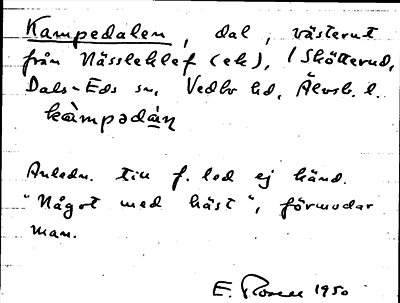 Kampedalen, dal, västerut
från Nässleklef (ek), i Skötterud,
Dals-Eds sn, Vedbo hd, Älvsb. l.
kàmpədàn
Anledn. till f. led ej känd.
"Något med häst", förmodar
man.
E. Rosell 1950